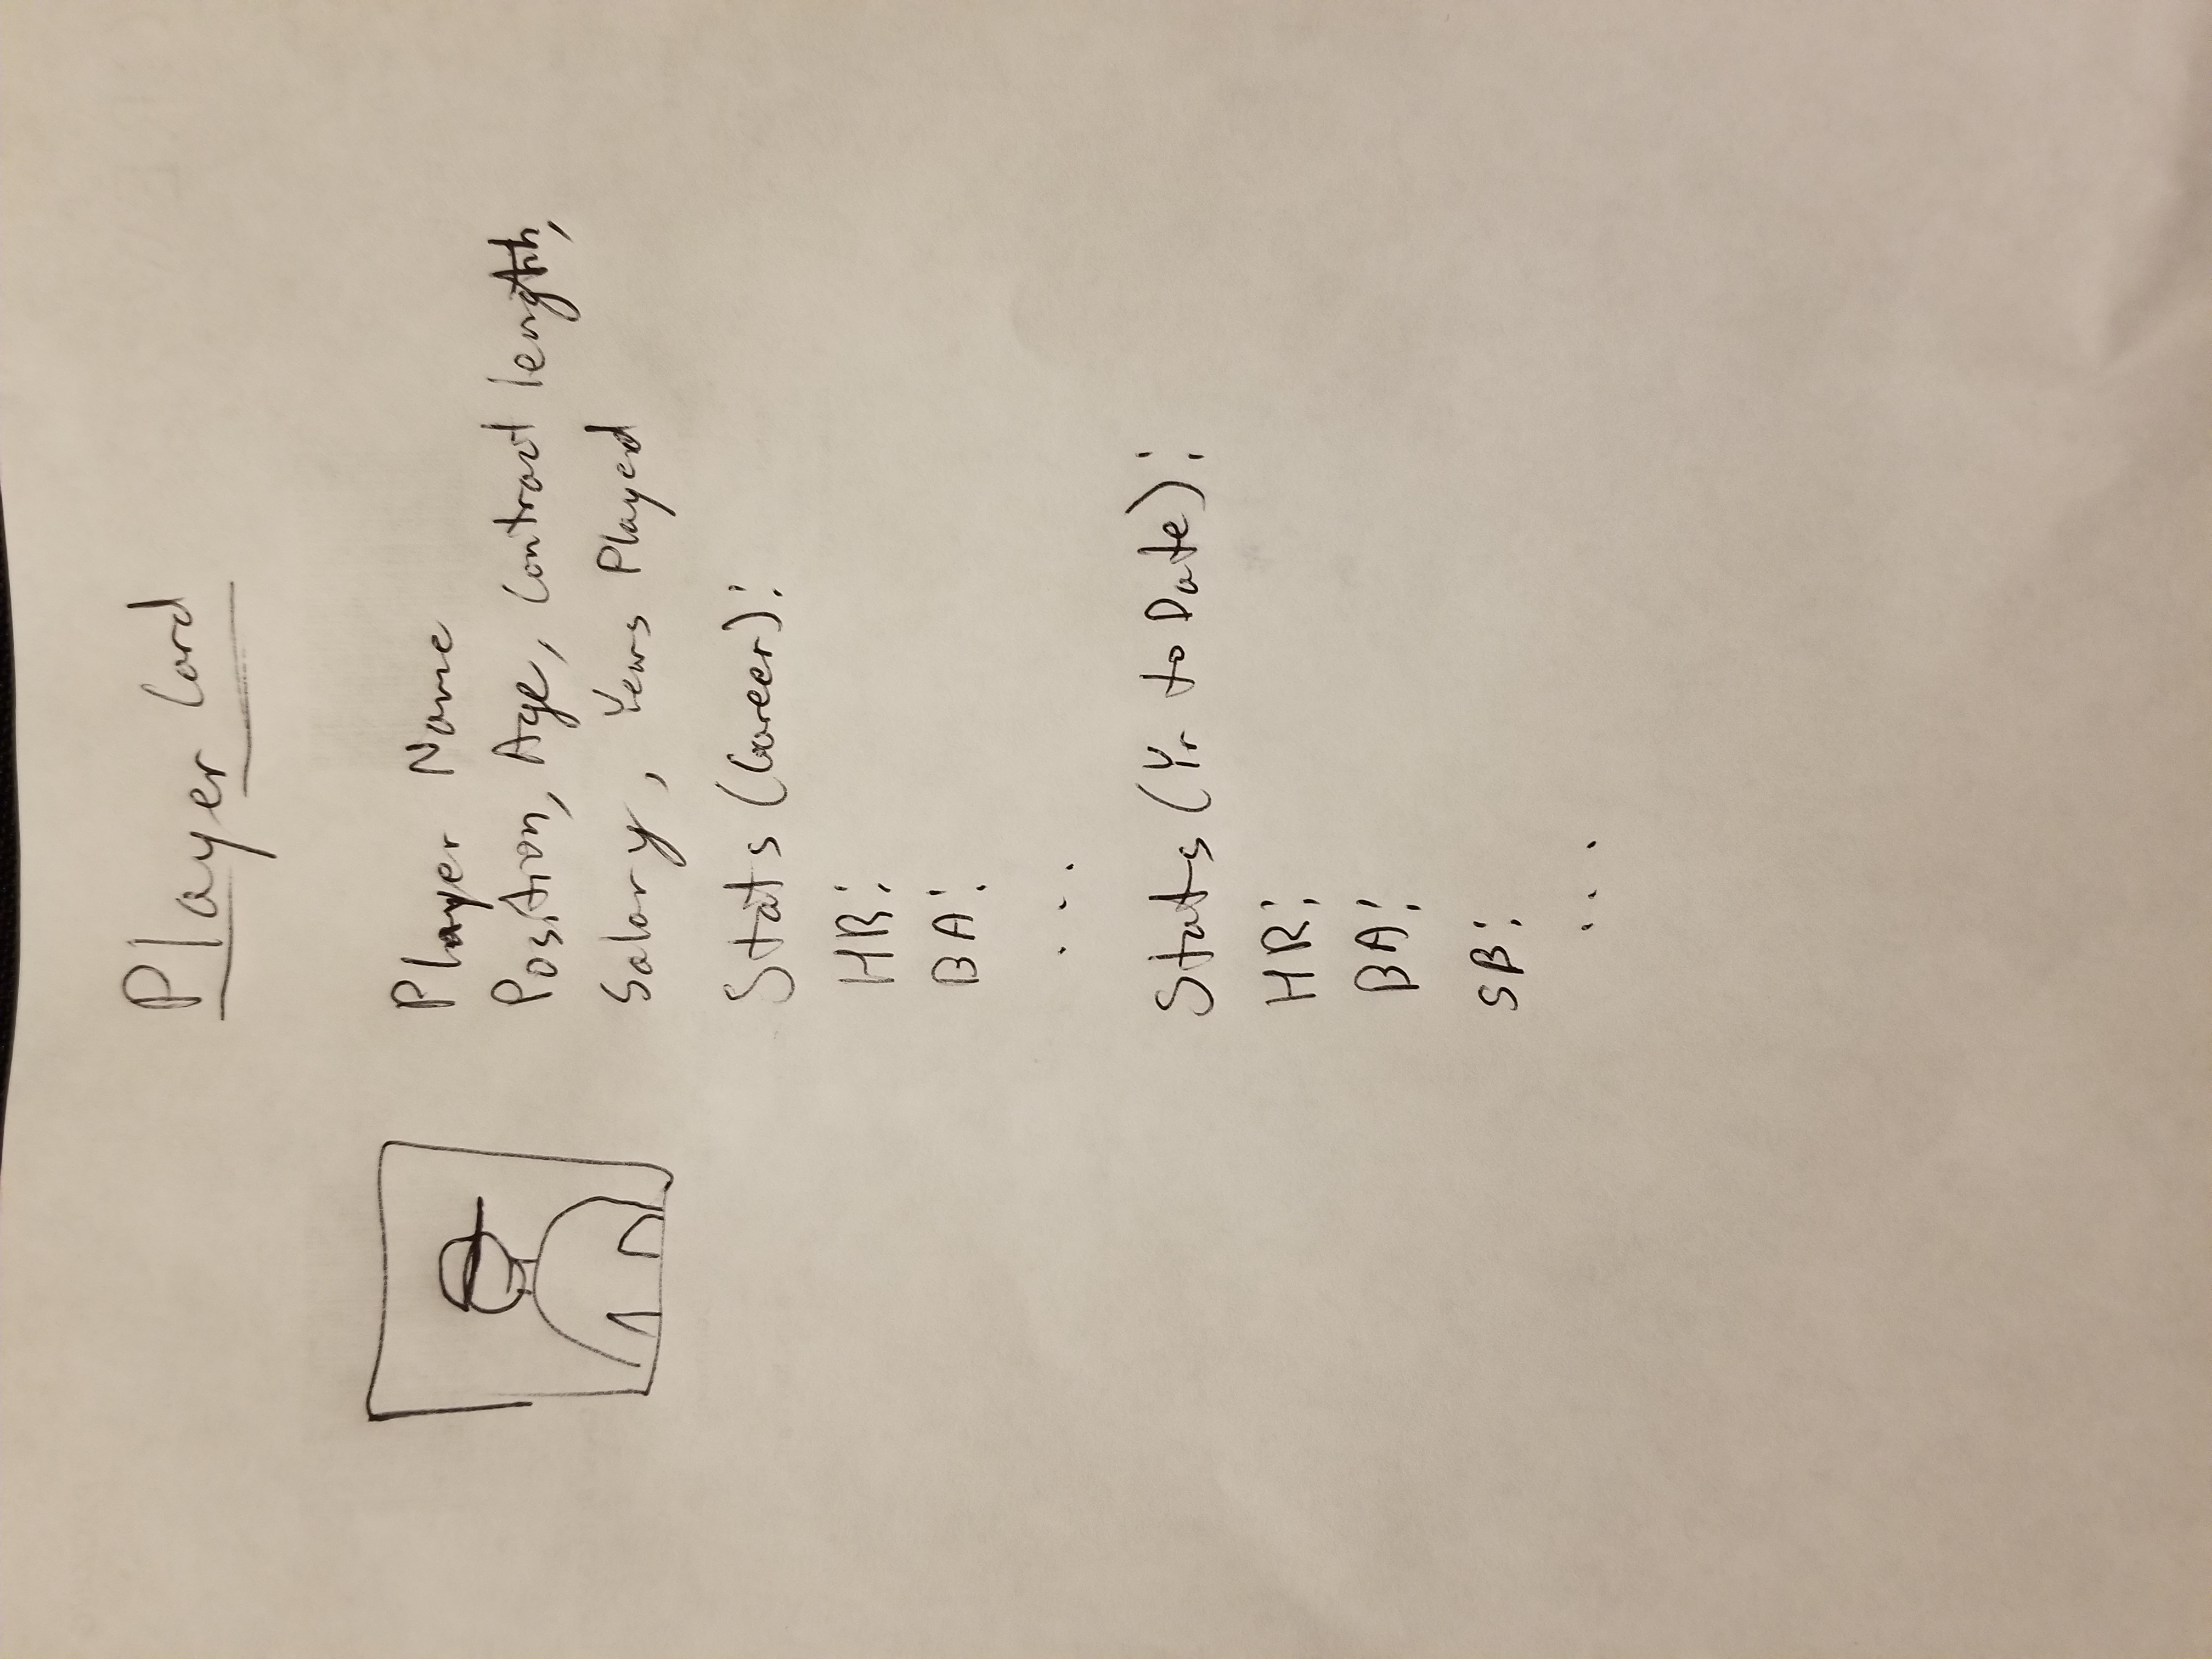 Player Card
Player Name
Position, Age, Contract length,
Salary, Years Played
Stats (Career):
HR:
BA:
...
Stats (Yr to Date):
HR:
BA:
SB:
...